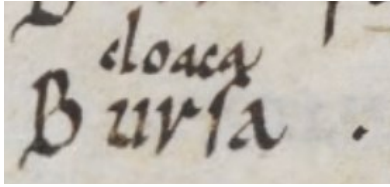 cloaca
Bursa .